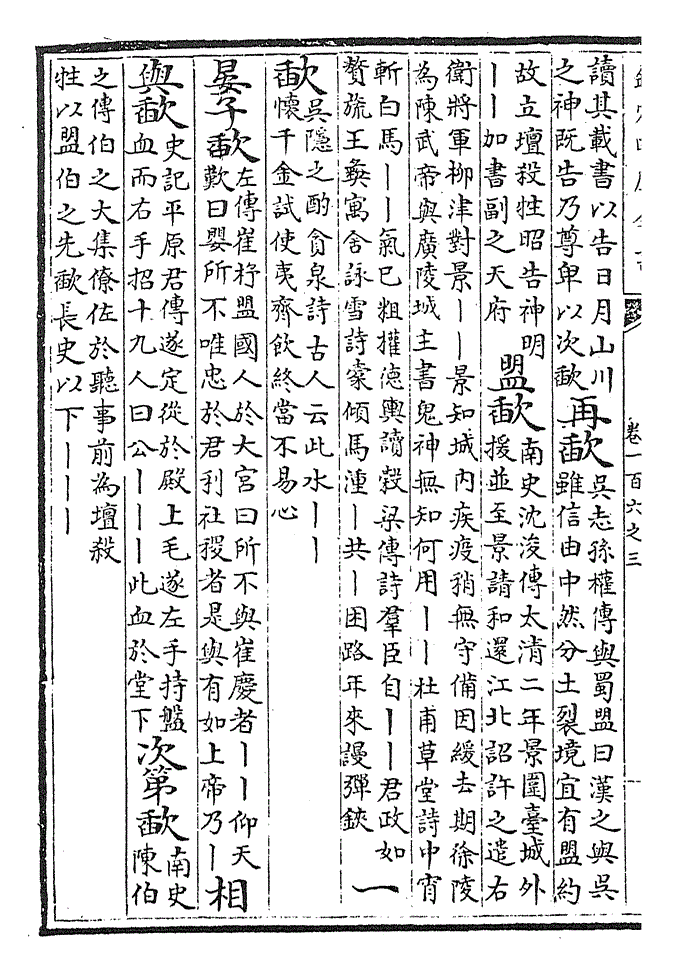 卷一百六之三
讀其載書以告日月山川
之神既告乃尊卑以次歃
再歃
吳志孫權傳與蜀盟曰漢之與吳
雖信由中然分土裂境宜有盟約
故立壇殺牲昭告神明
丨丨加書副之天府
盟歃
南史沈浚傳太清二年景圍臺城外
援並至景請和還江北詔許之遣右
衛將軍柳津對景丨丨景知城内疾疫稍無守備因緩去期徐陵
為陳武帝與廣陵城主書鬼神無知何用丨丨杜甫草堂詩中宵
斬白馬丨丨氣已粗權德輿讀榖梁傳詩羣臣自丨丨君政如
贅旒王彝寓舍詠雪詩橐傾馬湩丨共丨困路年來謾彈鋏
一
歃
吳隱之酌貪泉詩古人云此水丨丨
懷千金試使夷齊飲終當不易心
晏子歃
左傳崔杼盟國人於大宮曰所不與崔慶者丨丨仰天
歎曰嬰所不唯忠於君利社稷者是與有如上帝乃丨
相
與歃
史記平原君傳遂定從於殿上毛遂左手持盤
血而右手招十九人曰公丨丨丨此血於堂下
次第歃
南史
陳伯
之傳伯之大集僚佐於聽事前為壇殺
牲以盟伯之先歃長史以下丨丨丨